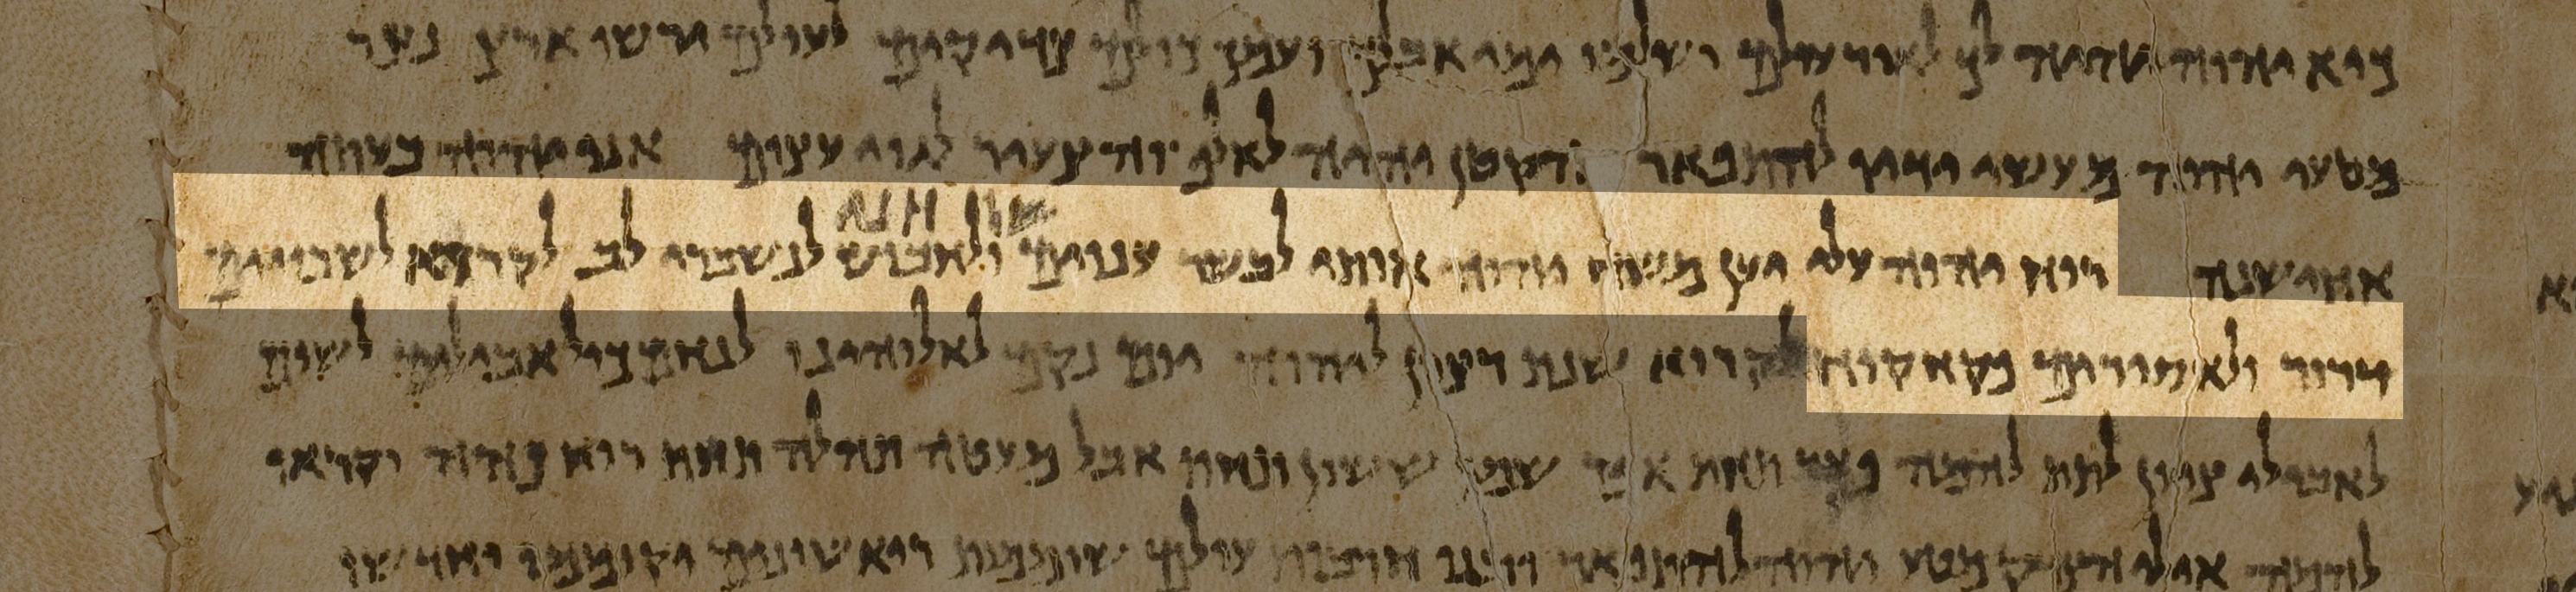 כיא יהוה יהיה לך לאור עולם ושלמו ימי אבלך ועמך כולם צדיקים לעולם ירשו ארץ נצר
מטעי יהוה מעשי ידיו להתפאר הקטן יהיה לאלף והצעיר לגוי עצום אני יהוה בעתה
שלחני
אחישנה רוח יהוה עלי יען משח יהוה אותי לבשר ענוים ולחבוש לנשברי לב לקרוא לשבויים
דרור ולאסורים פקח קוח לקרוא שנת רצון ליהוה יום נקם לאלוהינו לנחם כול אבלים לשום
לאבלי ציון לתת להמה פאר תחת אפר שמן ששון תחת אבל מעטה תהלה תחת רוח כהה וקראו
להמה אילי הצדק מטע יהוה להתפאר ובנו חרבות עולם שוממות ריאשונים יקוממו וחדשו